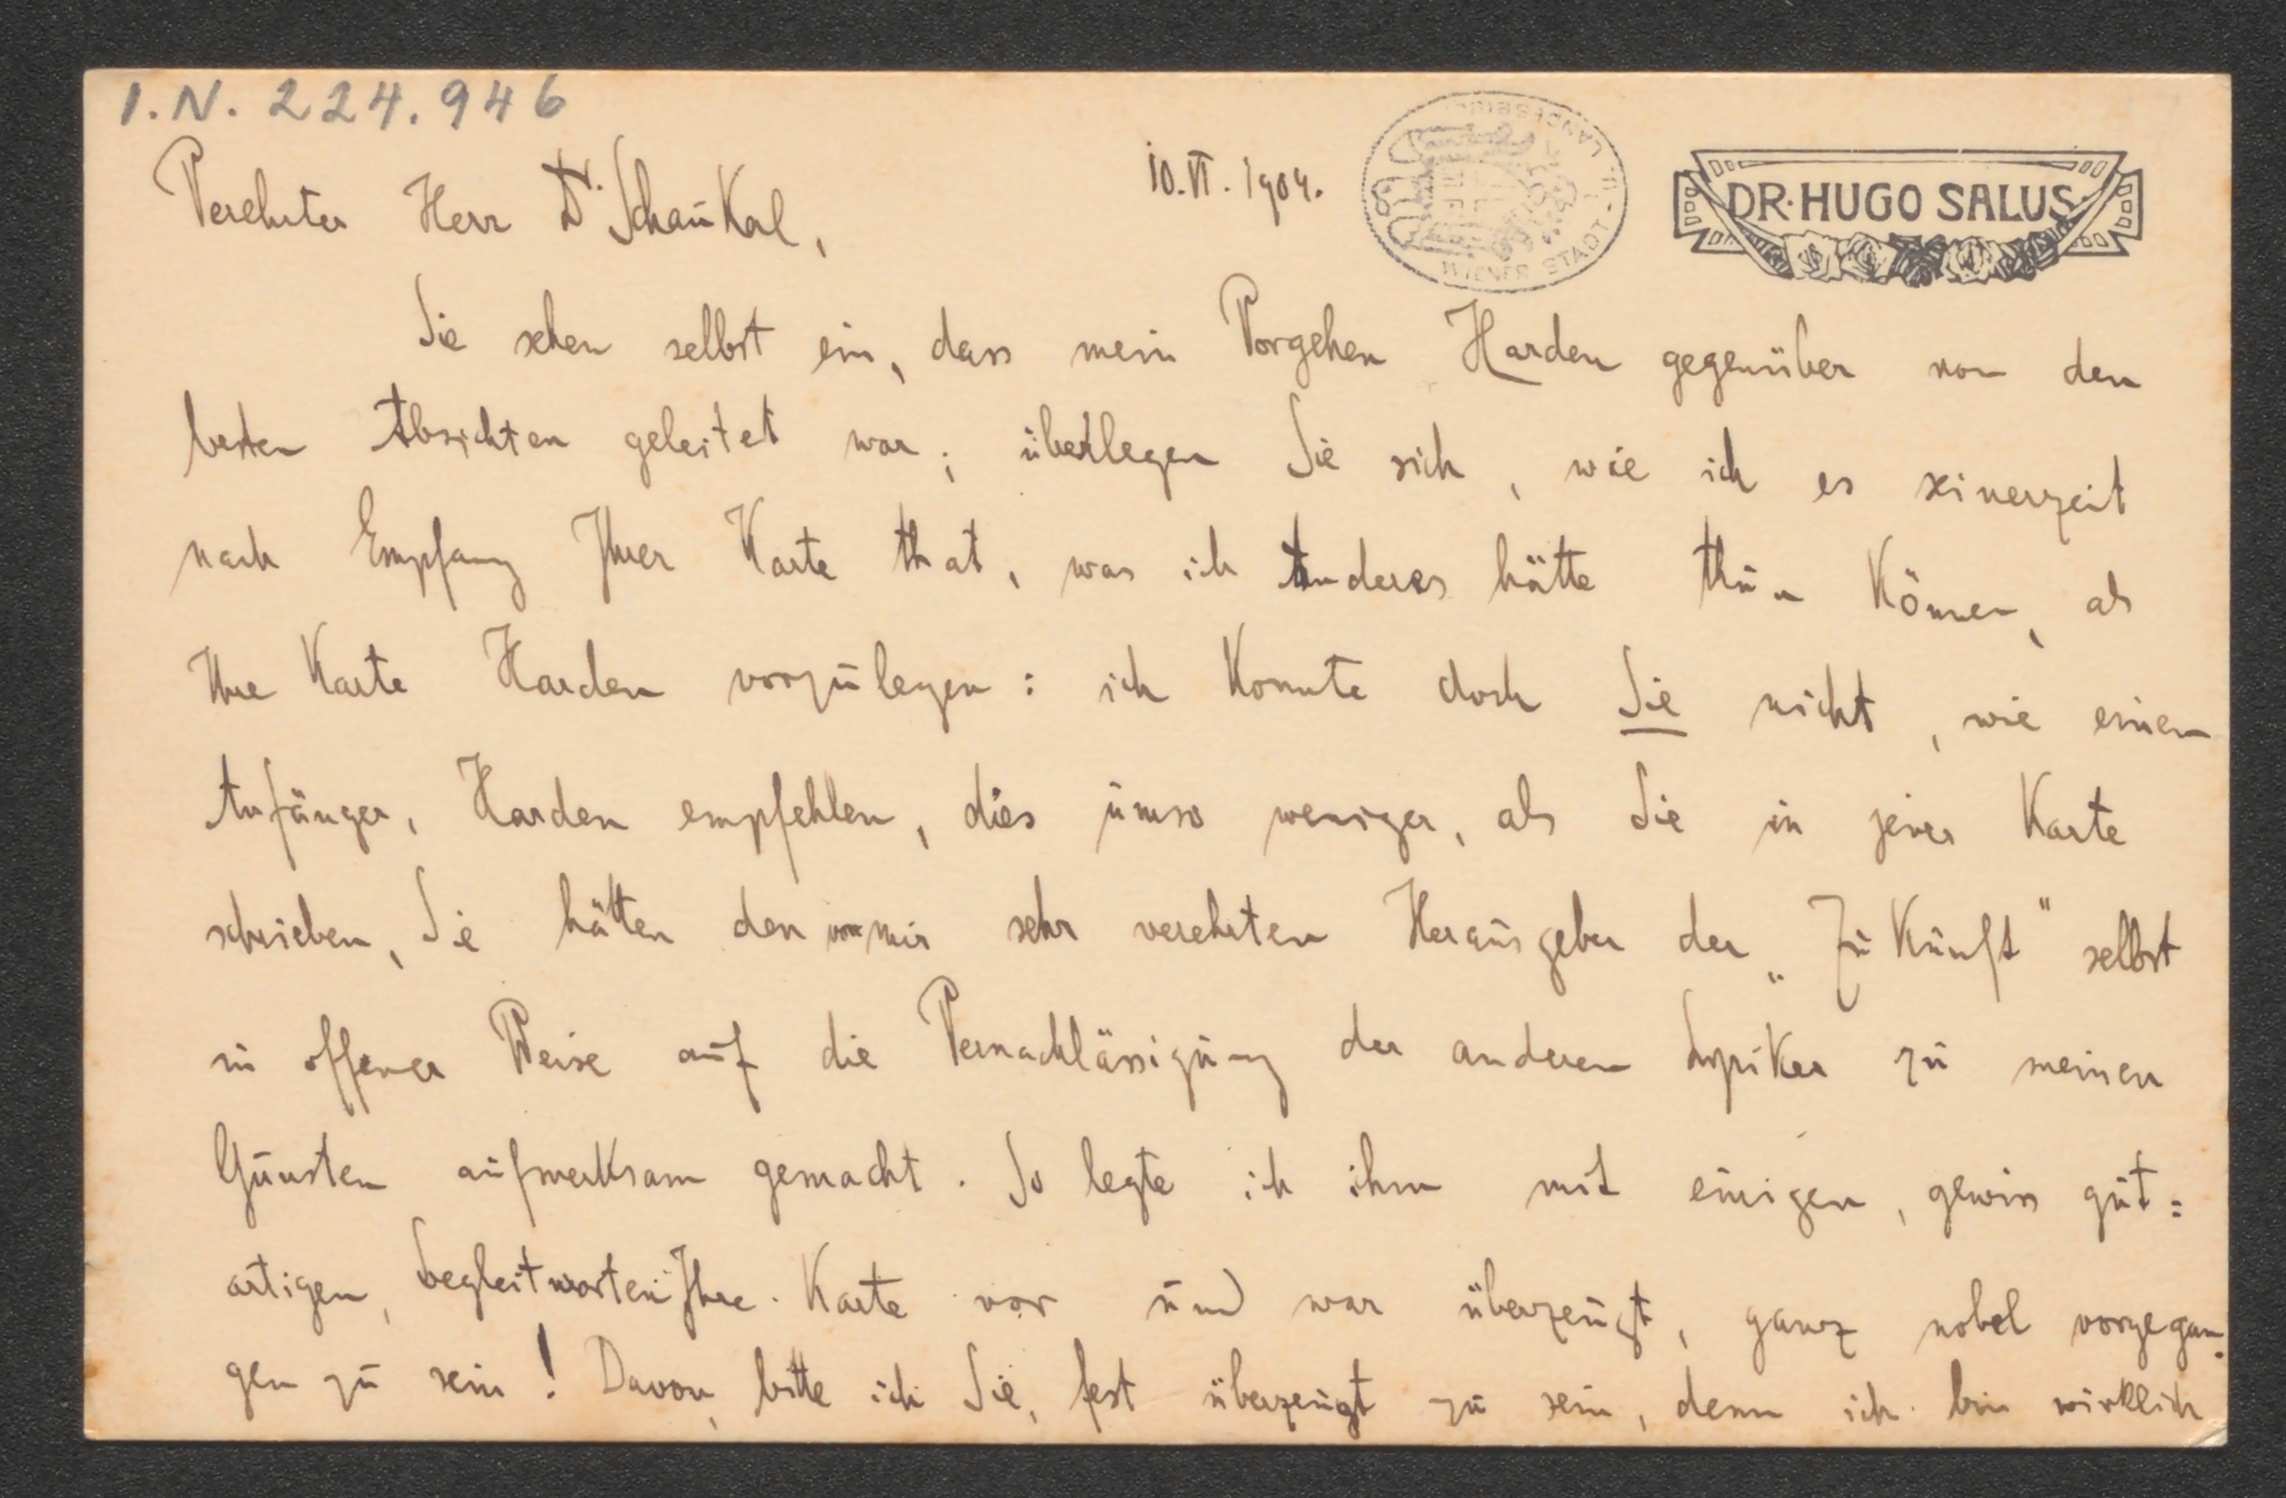 I.N. 224.946
10.VI.1904.
DR. HUGO SALUS
WIENER STADT- U. LANDESBIBL
Verehrter Herr Dr. Schaukal,
Sie sehen selbst ein, dass mein Vorgehen Harden gegenüber von den
besten Absichten geleitet war; überlegen Sie sich, wie ich es seinerzeit
nach Empfang Ihrer Karte that, was ich Anderes hätte thun können, als
Ihre Karte Harden vorzulegen: ich konnte doch Sie nicht, wie einen
Anfänger, Harden empfehlen, dies umso weniger, als Sie in jener Karte
schrieben, Sie hätten den von mir sehr verehrten Herausgeber der „Zukunft" selbst
in offener Weise auf die Vernachlässigung der anderen Lyriker zu meinen
Gunsten aufmerksam gemacht. So legte ich ihm mit einigen, gewiss gut=
artigen, Begleitworten Ihre Karte vor und war überzeugt, ganz nobel vorgegan-
gen zu sein! Davon, bitte ich Sie, fest überzeugt zu sein, denn ich bin wirklich